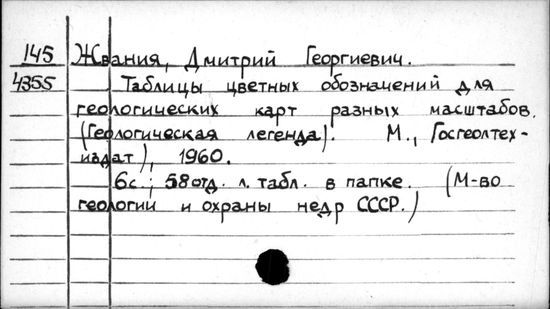 145 Жвания, Дмитрий Георгиевич.
4355 Таблицы цветных обозначений для
геологических карт разных масштабов.
(Геологическая легенда). М., Госгеолтех-
издат), 1960.
6с.; 58 отд. л. табл. в папке. (М-во
геологии и охраны недр СССР.)